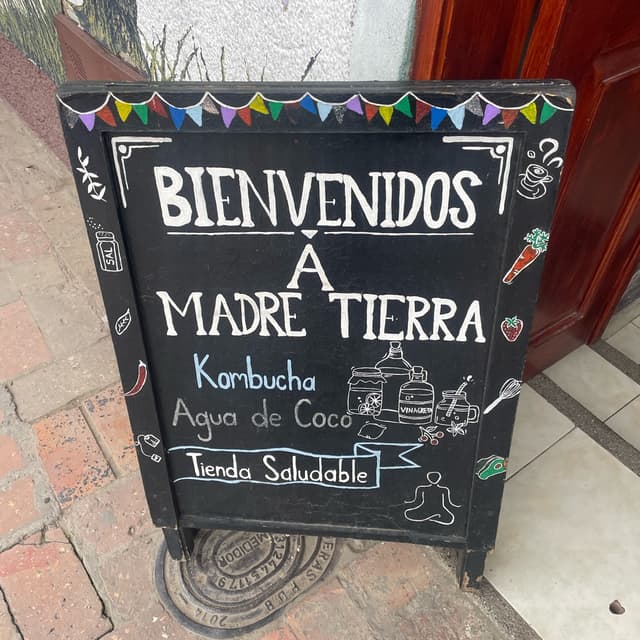 BIENVENIDOS
A
MADRE TIERRA
Kombucha
Agua de Coco
Tienda Saludable
SAL
VINAGRETA
MEDIDOR
2014